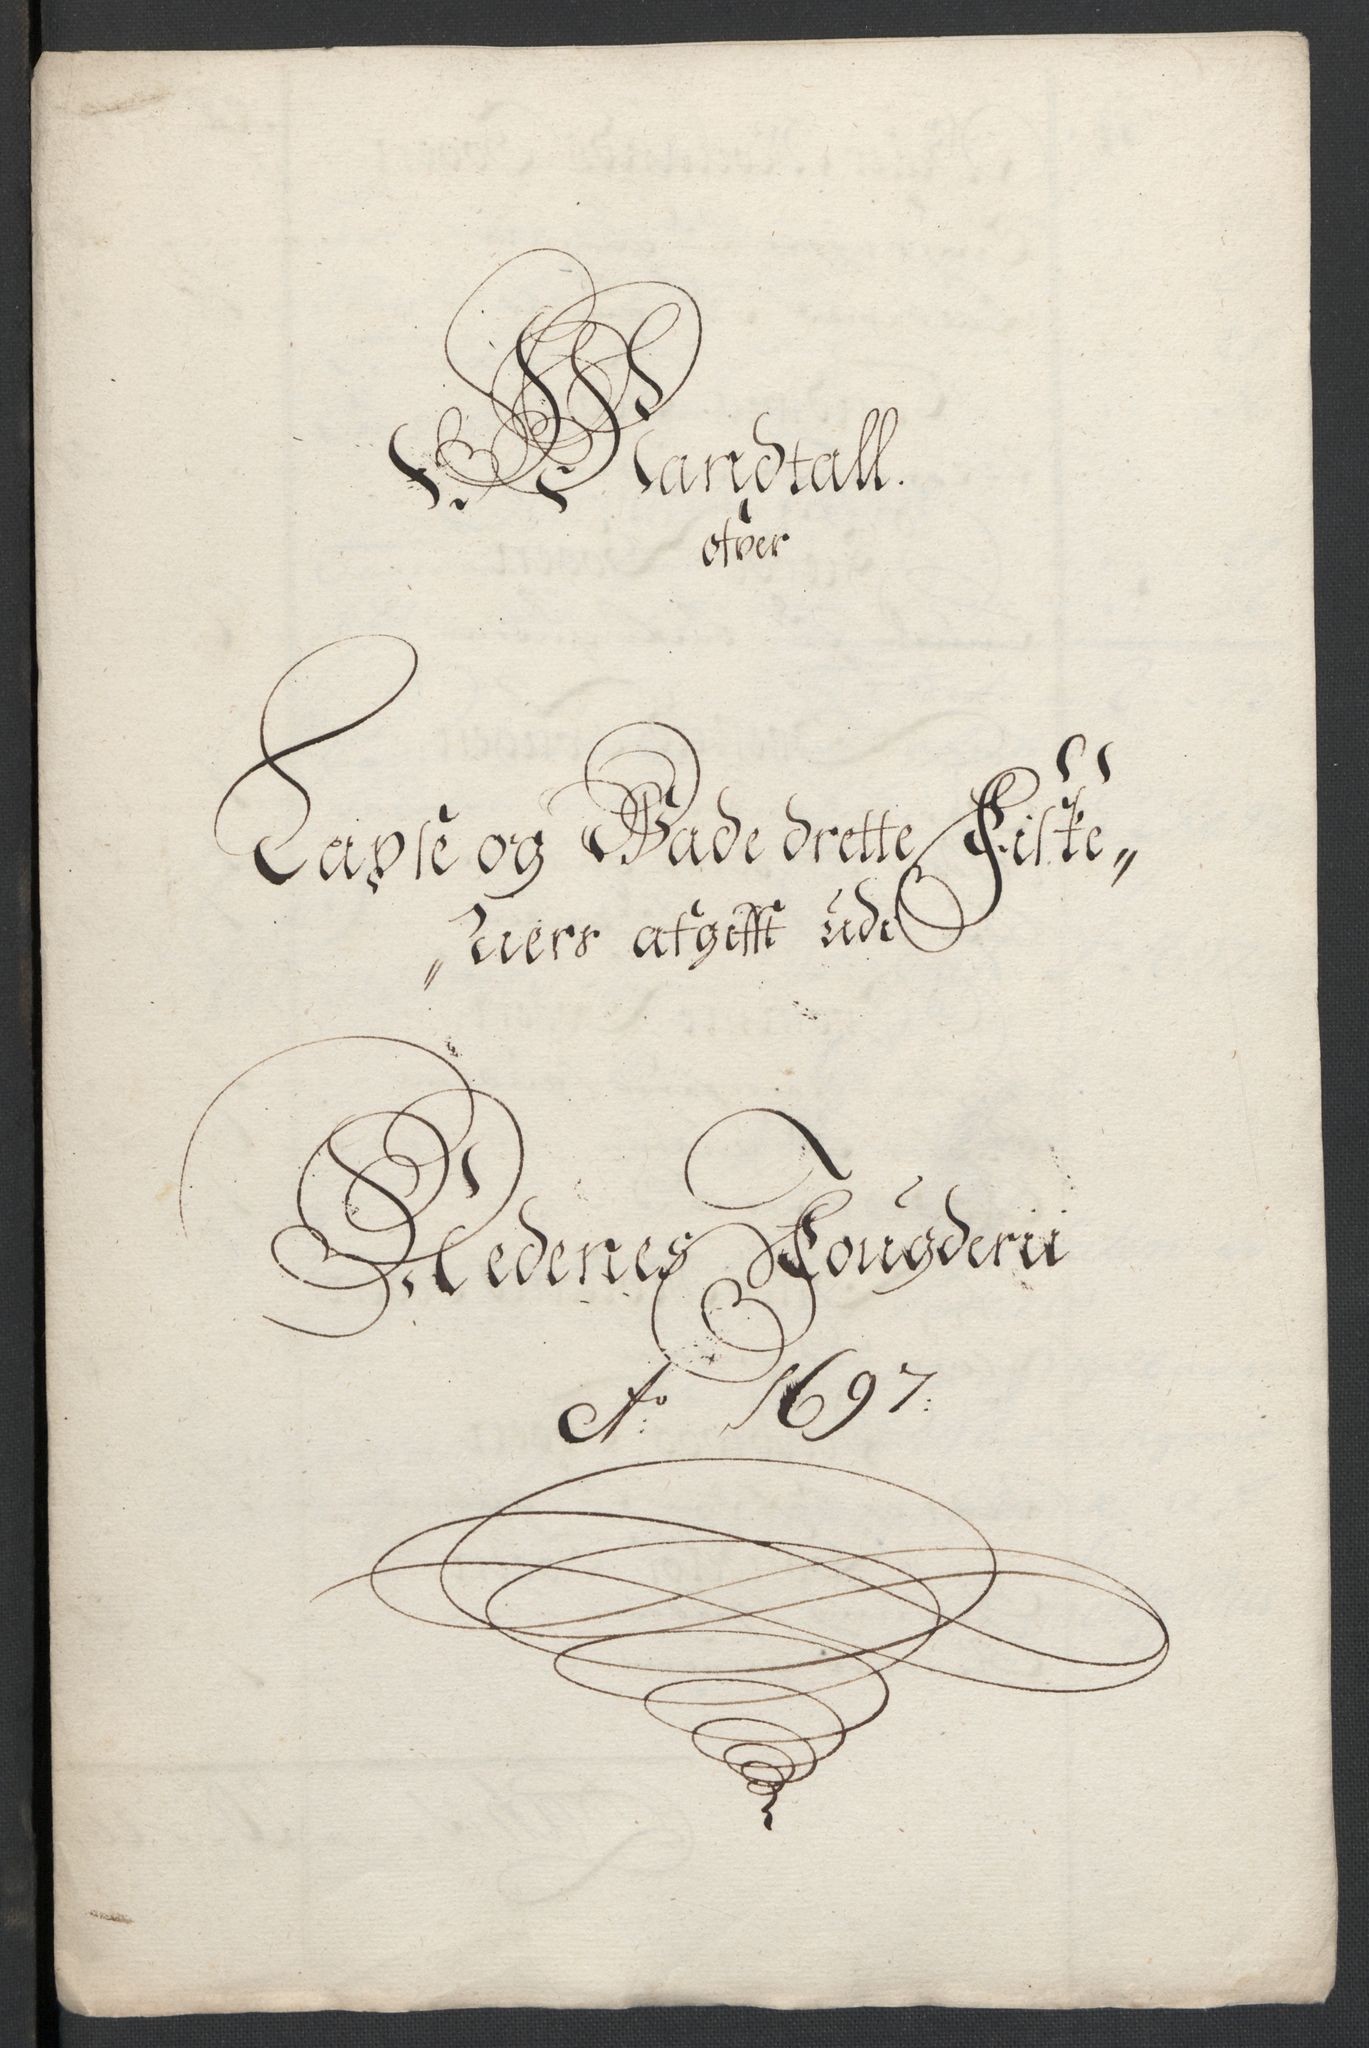 Mandtall.
ofver
Laxse og Wade drette Fiske„
„riers afgifft udi
Nedenes Fougderii
Ao. 1697.